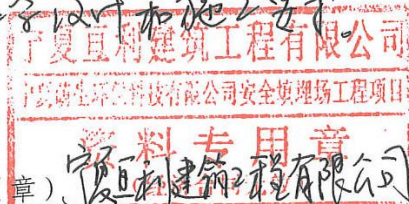 设计和施工
宁夏亘利建筑工程有限公司
科技有限公司安全填埋场工程项目
资料专用章
章)宁夏亘利建筑工程有限公司